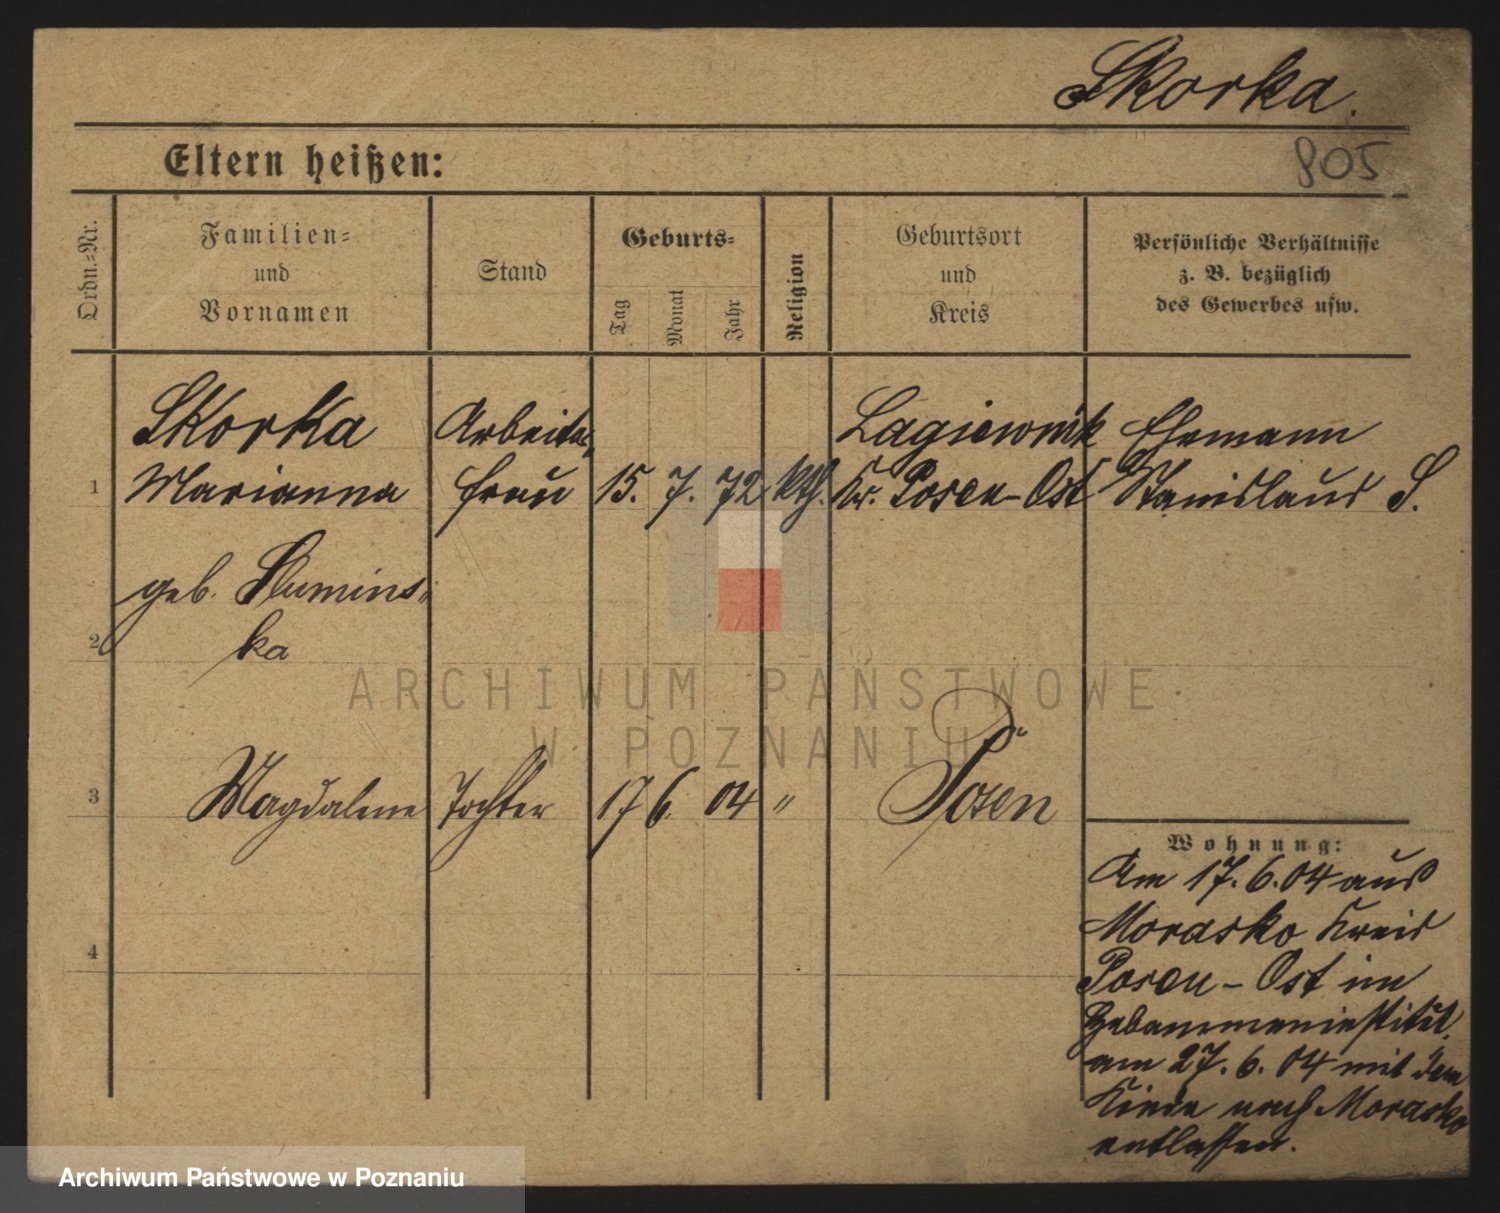 Skorka.
Eltern heißen:
805
Ordn.-Nr.
Familien-
und
Vornamen
Stand
Geburts-
Tag
Monat
Jahr
Religion
Geburtsort
und
Kreis
Persönliche Verhältnisse
z. B. bezüglich
des Gewerbes usw.
Skorka Arbeiter Lagiewnik Ehemann
1 Marianna frau 15. 7. 72 kth. Kr. Posen-Ost Stanislaus S.
geb. Slumins-
2 ka
3 Magdalene Tochter 17 6. 04 " Posen
4
Wohnung:
Am 17. 6. 04 aus
Morasko Kreis
Posen-Ost im
Hebammeninstitut,
am 27. 6. 04 mit dem
Kinde nach Morasko
entlassen.
ARCHIWUM PAŃSTWOWE
W POZNANIU
Archiwum Państwowe w Poznaniu